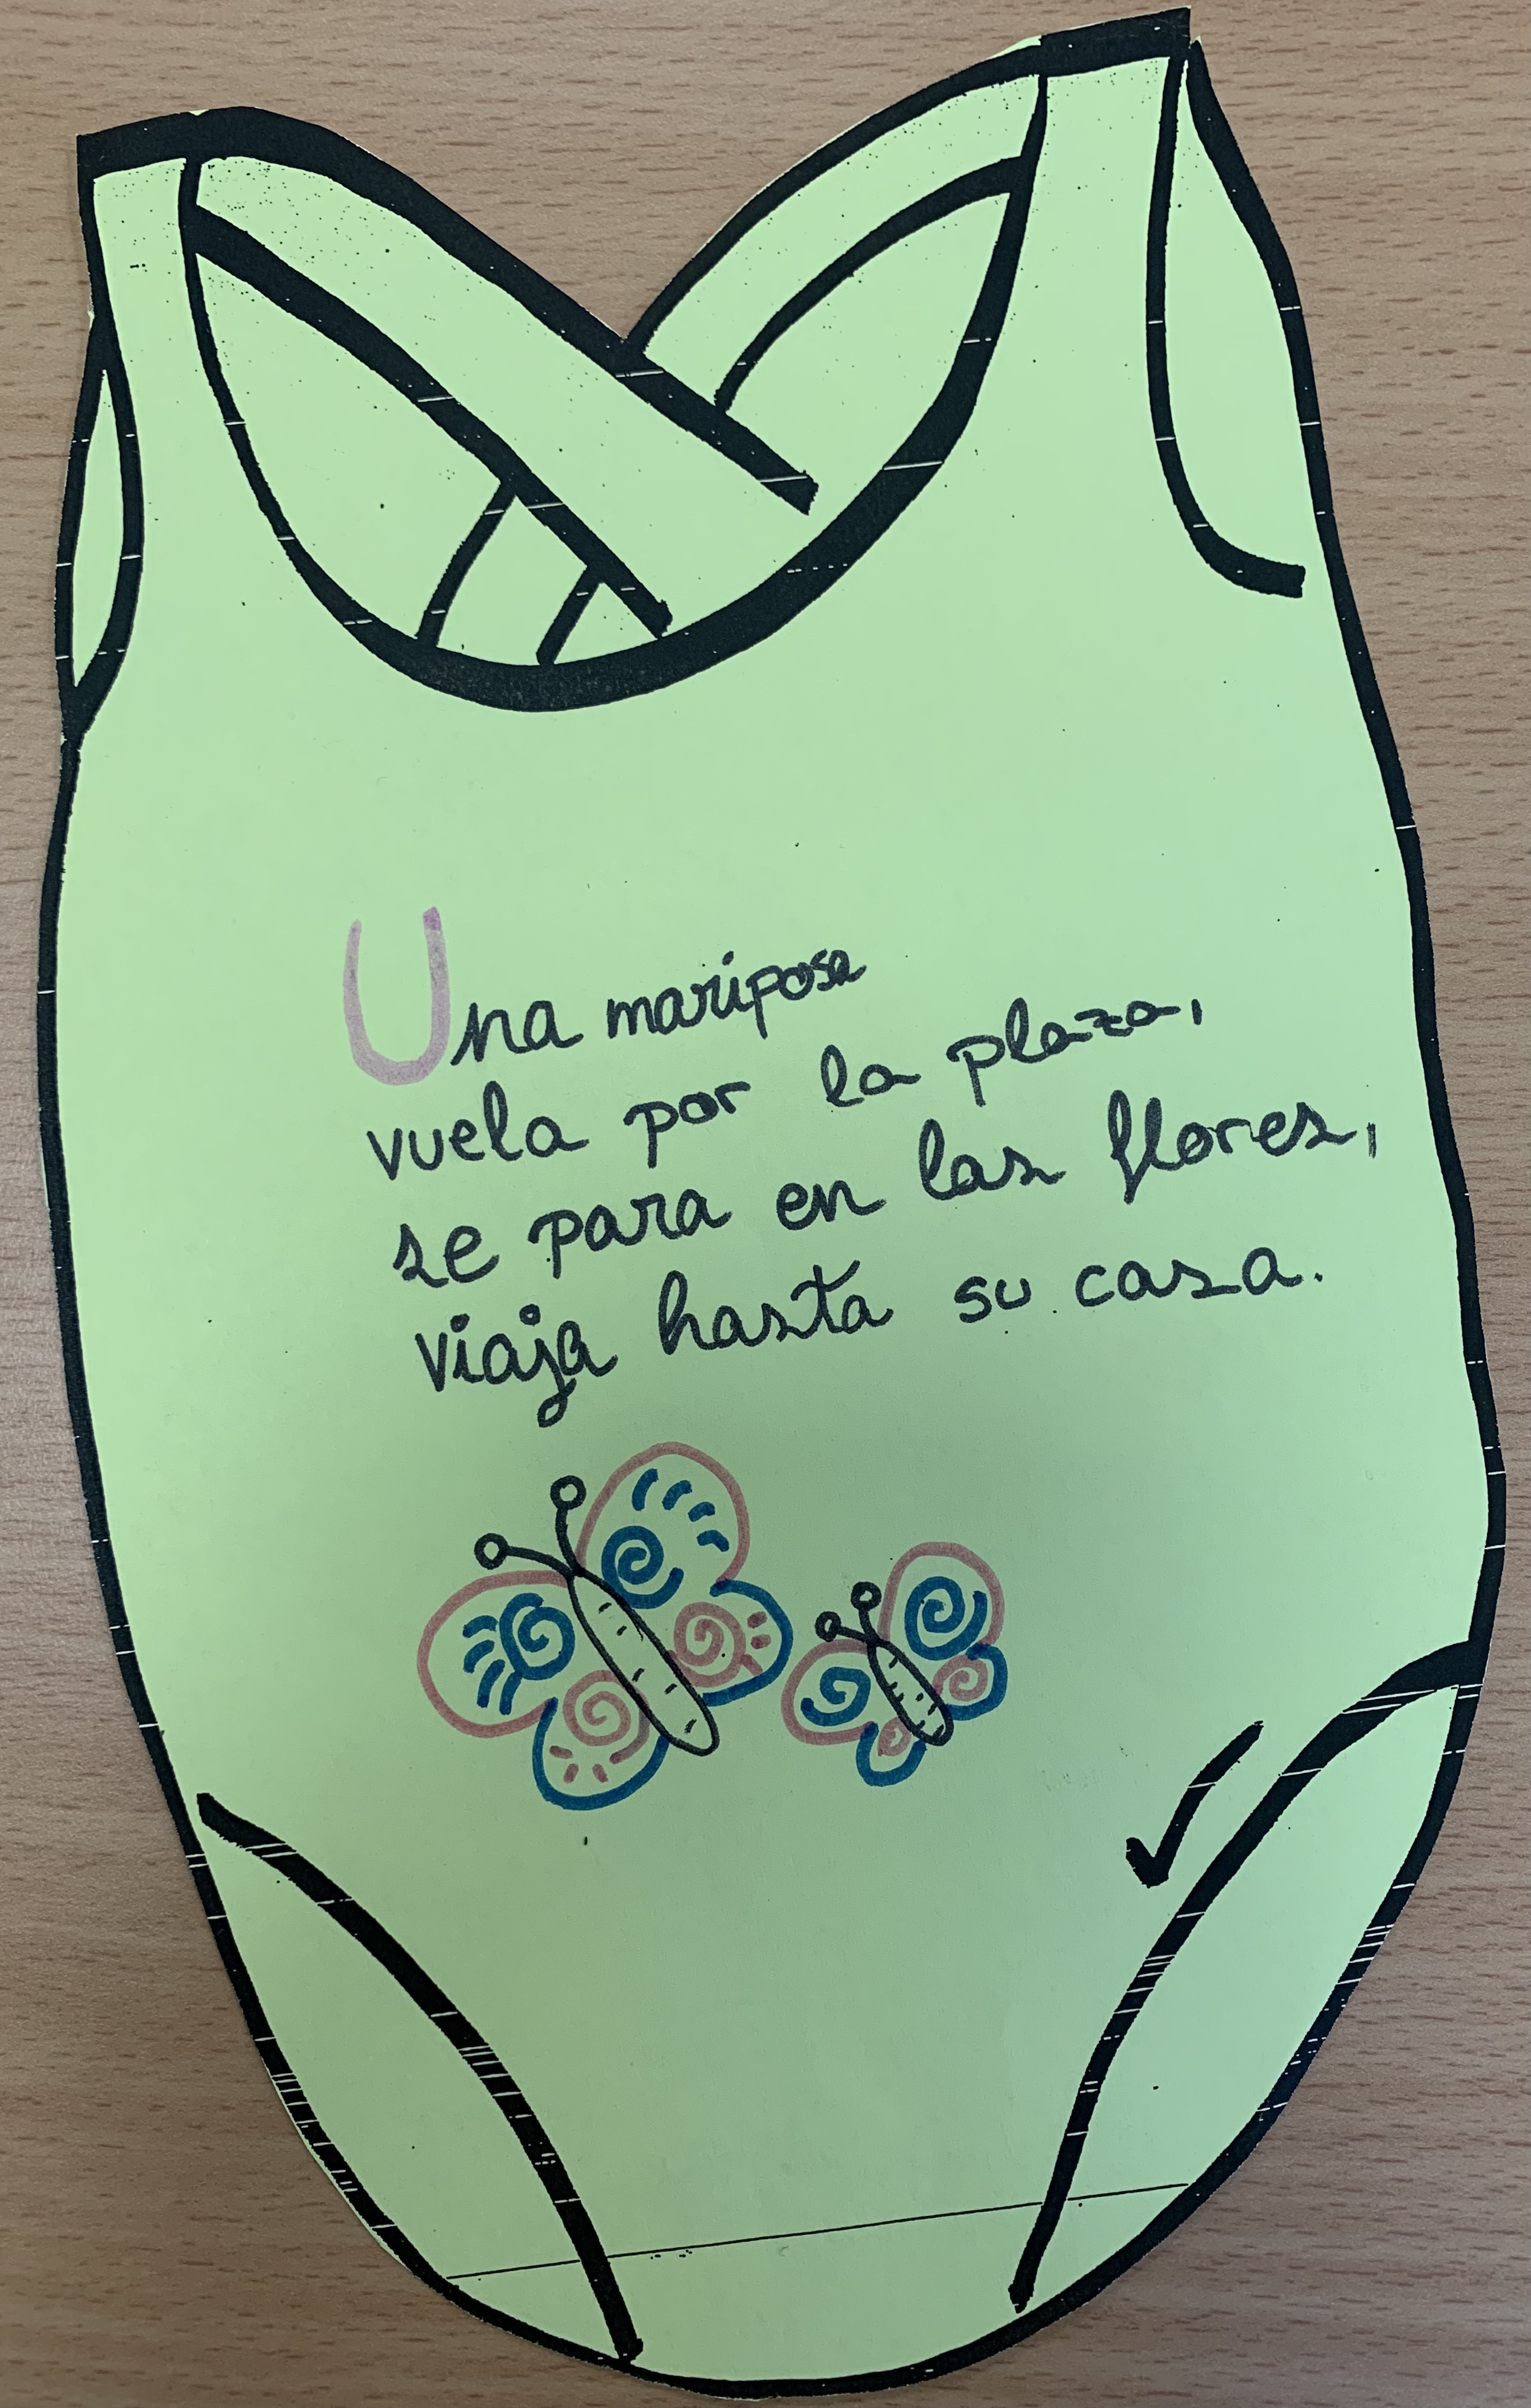 Una mariposa
vuela por la plaza,
se para en las flores,
viaja hasta su casa.